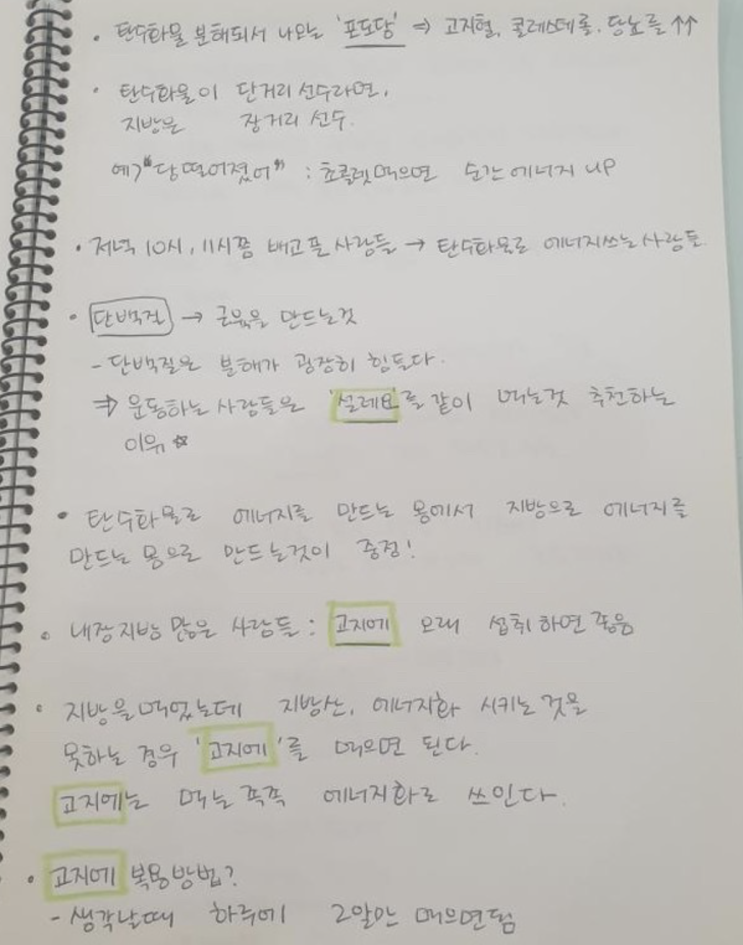 • 탄수화물 분해되서 나오는 '포도당' ⇒ 고지혈, 콜레스테롤, 당뇨를 ↑↑
• 탄수화물이 단거리 선수라면,
지방은 장거리 선수.
예> "당 떨어졌어" : 초콜렛 먹으면 순간 에너지 UP
• 저녁 10시, 11시쯤 배고플 사람들 → 탄수화물로 에너지쓰는 사람들.
• 단백질 → 근육을 만드는것
- 단백질은 분해가 굉장히 힘들다.
⇒ 운동하는 사람들은 '설레요'를 같이 먹는것 추천하는
이유 ☆
• 탄수화물로 에너지를 만드는 몸에서 지방으로 에너지를
만드는 몸으로 만드는것이 중점!
• 내장지방 많은 사람들 : 고지에 오래 섭취하면 좋음
• 지방을 먹었는데 지방산, 에너지화 시키는 것을
못하는 경우 '고지에'를 먹으면 된다.
고지에는 먹는 족족 에너지화로 쓰인다.
• 고지에 복용방법?
- 생각날때 하루에 2알만 먹으면됨